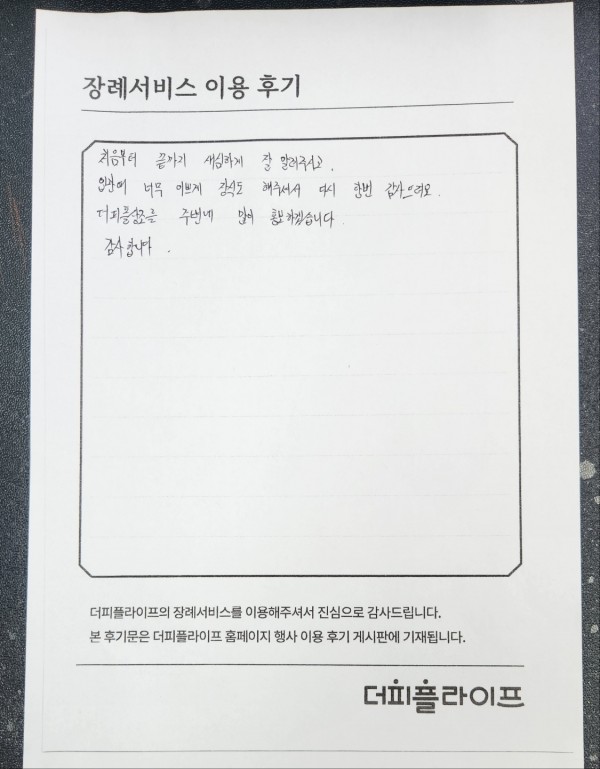 장례서비스 이용 후기
처음부터 끝까지 세심하게 잘 알려주시고.
입관에 너무 이쁘게 장식도 해주셔서 다시 한번 감사드려요.
더피플상조를 주변에 많이 홍보하겠습니다.
감사합니다.
더피플라이프의 장례서비스를 이용해주셔서 진심으로 감사드립니다.
본 후기문은 더피플라이프 홈페이지 행사 이용 후기 게시판에 기재됩니다.
더피플라이프